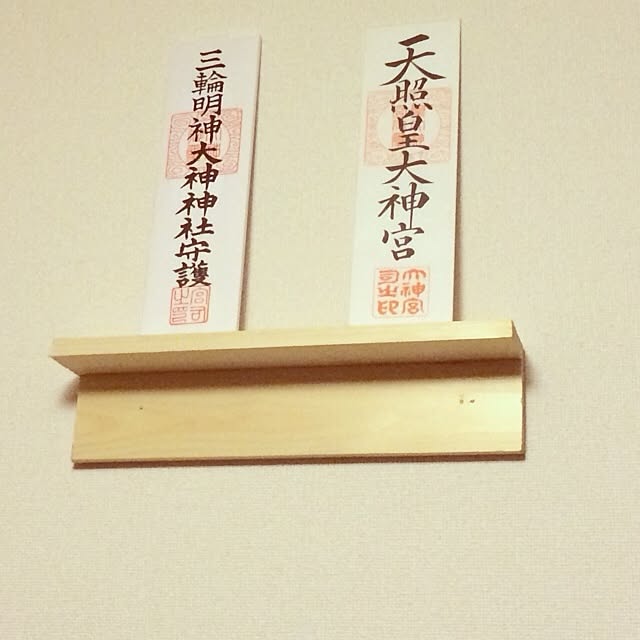 天照皇大神宮
大神宮
司之印
三輪明神大神神社守護
宮司
之印